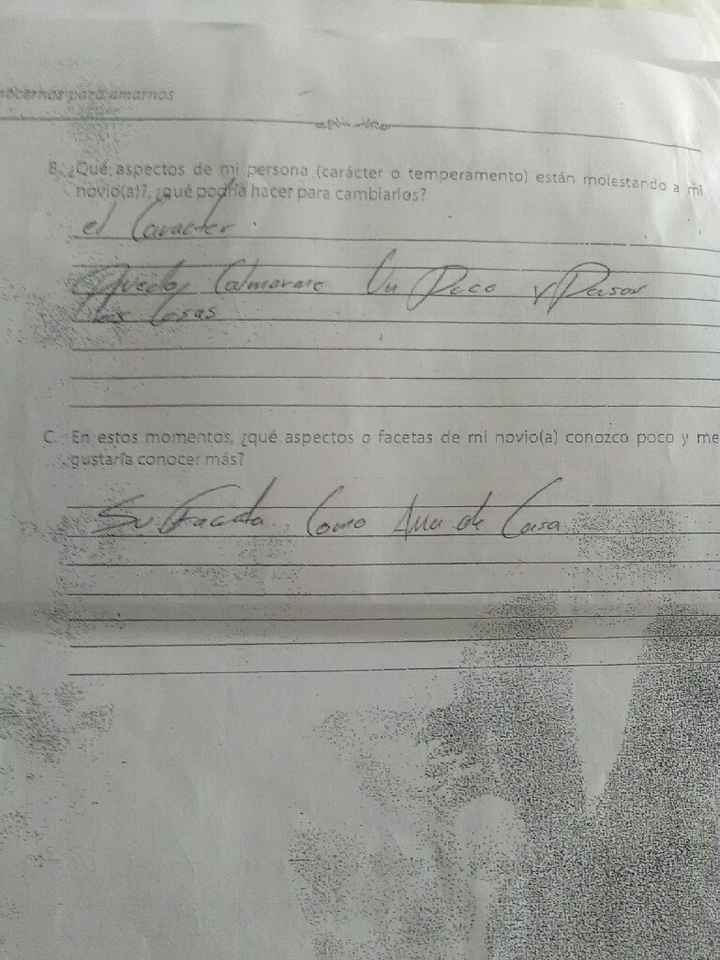 nocernos para amarnos
B. ¿Qué aspectos de mi persona (carácter o temperamento) están molestando a mi
novio(a)?, ¿qué podría hacer para cambiarlos?
el Caracter.
Calmarme Un Poco y Pensar
las Cosas
C. En estos momentos, ¿qué aspectos o facetas de mi novio(a) conozco poco y me
gustaría conocer más?
Su Como Ama de Casa